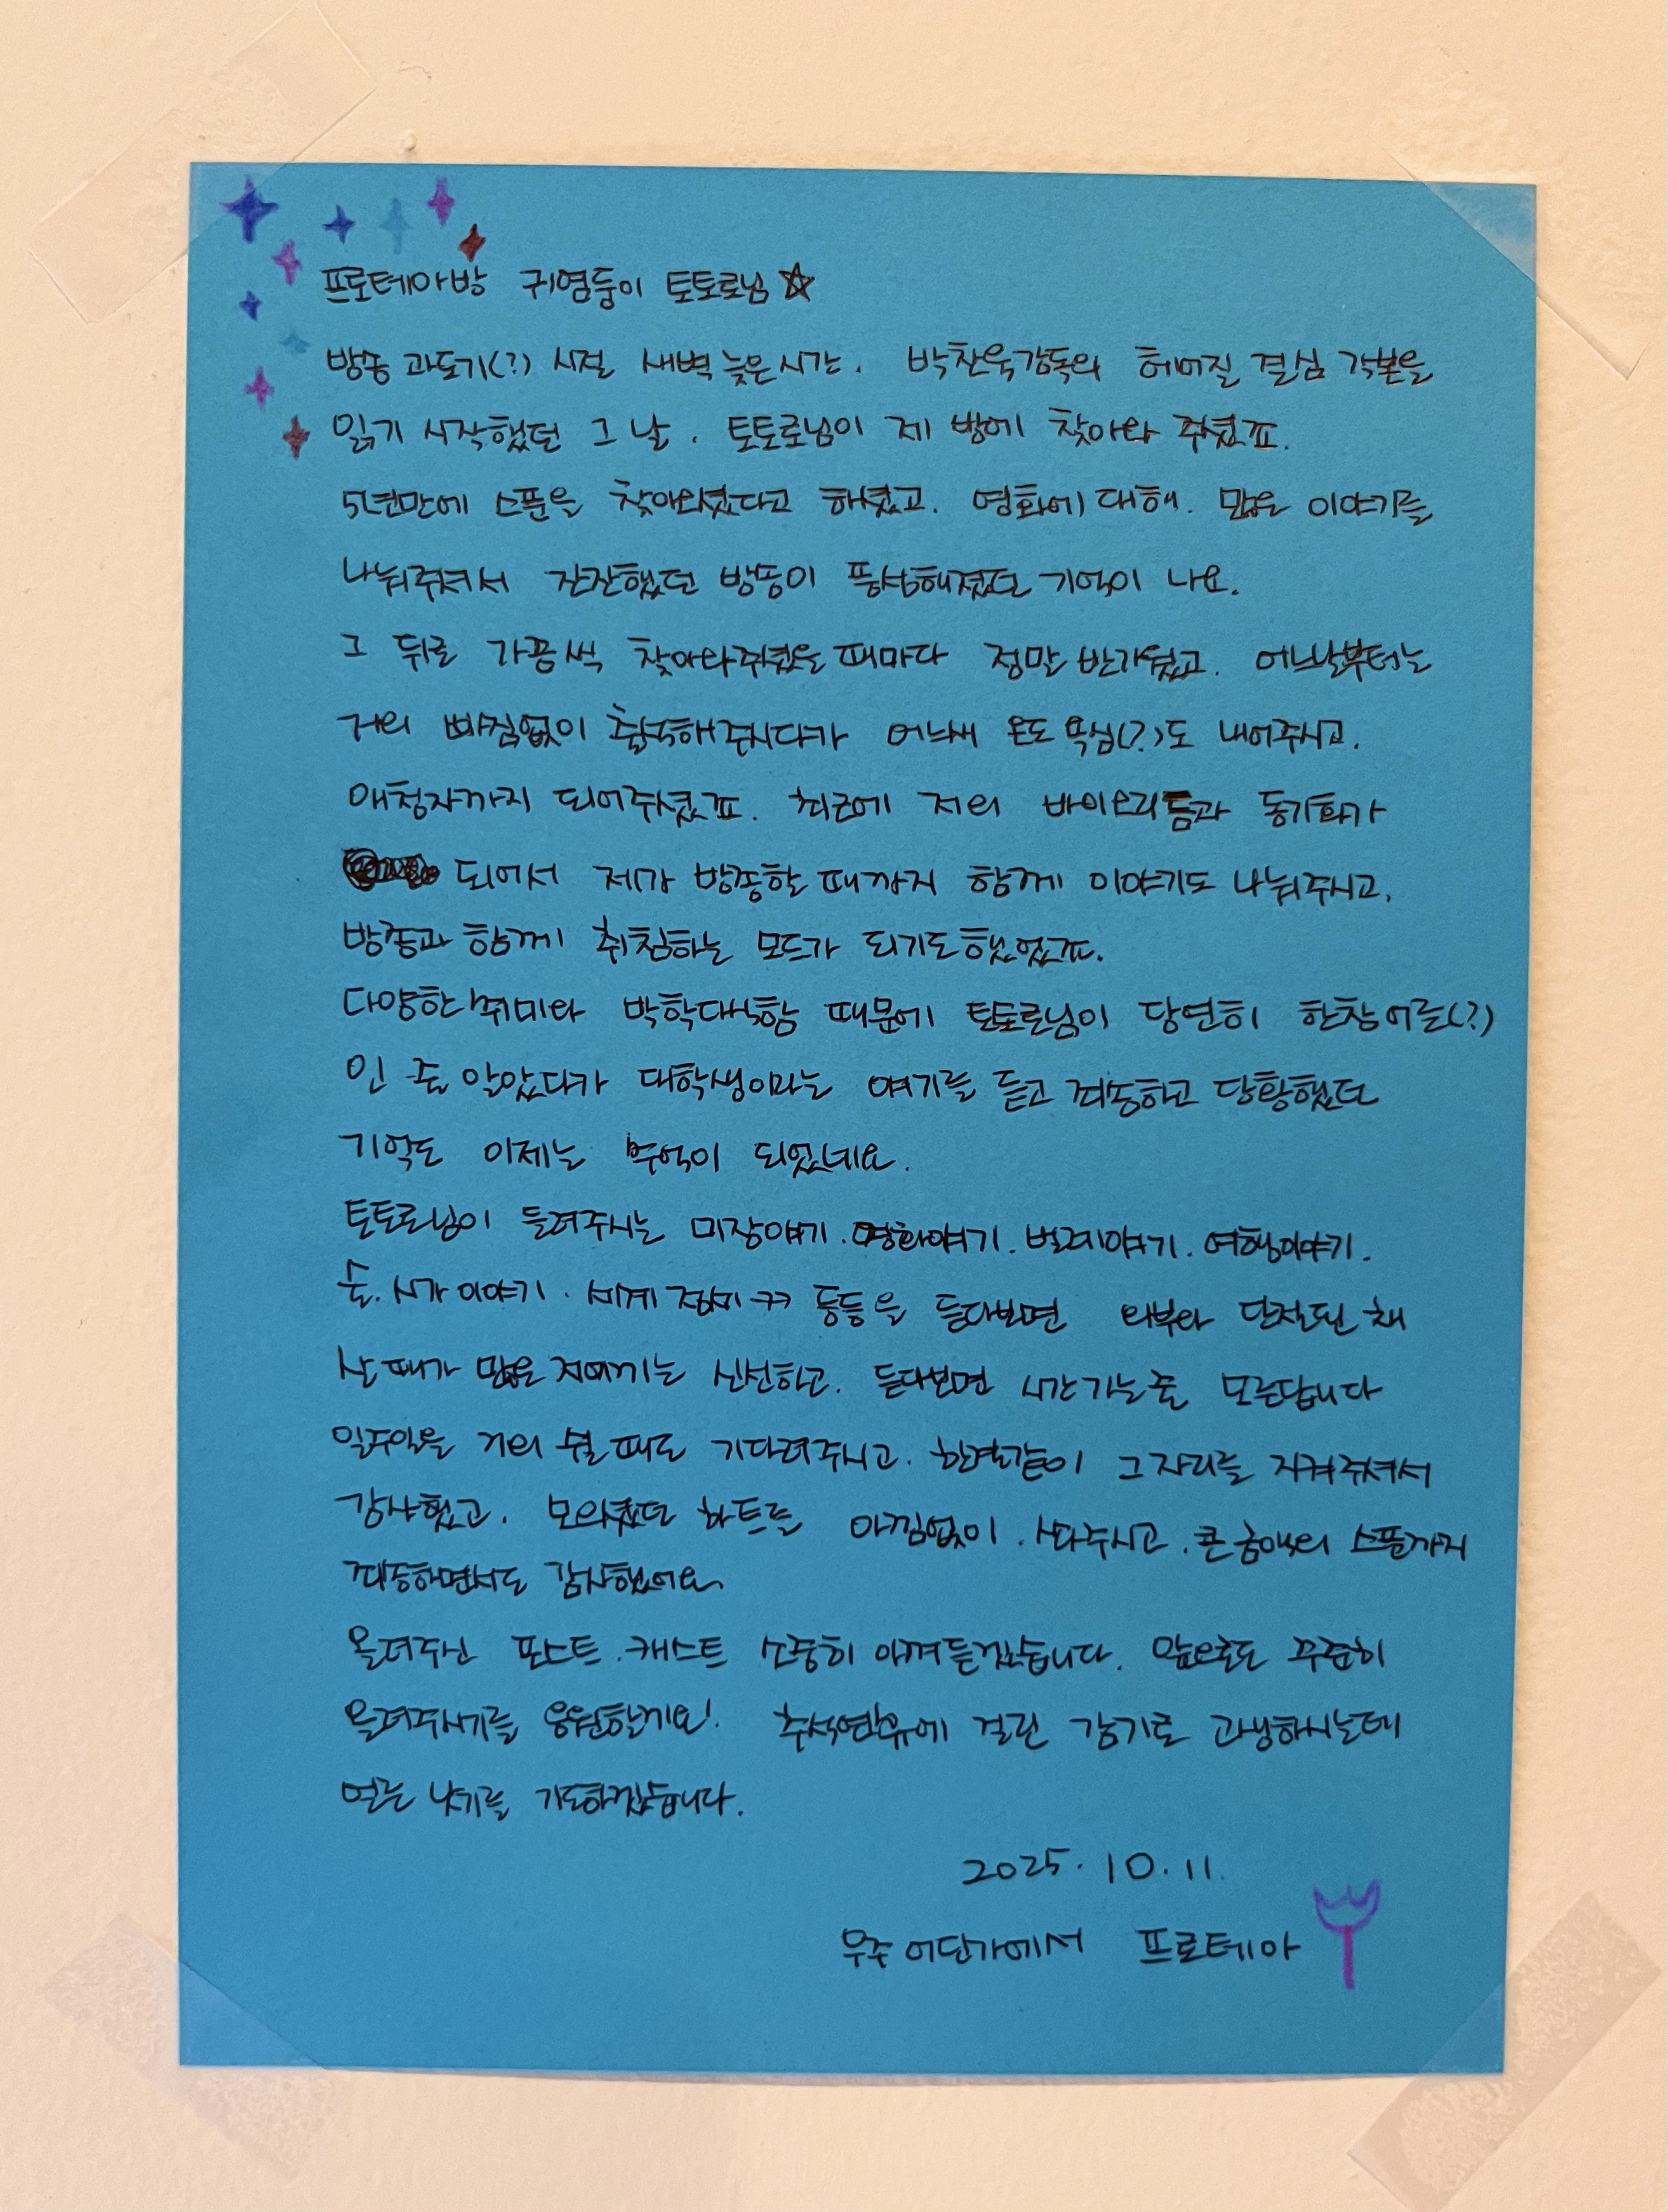 프로테아방 귀염둥이 토토로님☆
방송 과도기(?) 시절 새벽 늦은시간. 박찬욱감독의 헤어질 결심 각본을
읽기 시작했던 그 날. 토토로님이 제 방에 찾아와 주셨죠.
5년만에 스푼을 찾아오셨다고 하셨고. 영화에 대해. 많은 이야기를
나눠주셔서 잔잔했던 방송이 풍성해졌던 기억이 나요.
그 뒤로 가끔씩 찾아와주셨을 때마다 정말 반가웠고. 어느날부터는
거의 빠짐없이 출석해주시다가 어느새 온도 욕심(?)도 내어주시고.
애청자까지 되어주셨죠. 최근에 저의 바이오리듬과 동기화가
되어서 제가 방종할 때까지 함께 이야기도 나눠주시고.
방종과 함께 취침하는 모드가 되기도했었죠.
다양한 취미와 박학다식함 때문에 토토로님이 당연히 한참어른(?)
인 줄 알았다가 대학생이라는 얘기를 듣고 죄송하고 당황했던
기억도 이제는 추억이 되었네요.
토토로님이 들려주시는 미장얘기. 영화얘기. 벌레얘기. 여행이야기.
술. 시가이야기. 세계정세ㅋㅋ 등등을 듣다보면 외부와 단절된 채
산 때가 많은 저에게는 신선하고. 듣다보면 시간가는줄 모른답니다
일주일을 거의 쉴 때도 기다려주시고. 한결같이 그자리를 지켜주셔서
감사했고. 모으셨던 하트를 아낌없이. 쏴주시고. 큰금액의 스푼까지
죄송하면서도 감사했어요.
올려주신 포스트. 캐스트 소중히 아껴듣겠습니다. 앞으로도 꾸준히
올려주시기를 응원할게요! 추석연휴에 걸린 감기로 고생하시는데
얼른 낫기를 기도하겠습니다.
2025. 10. 11.
우주 어딘가에서 프로테아